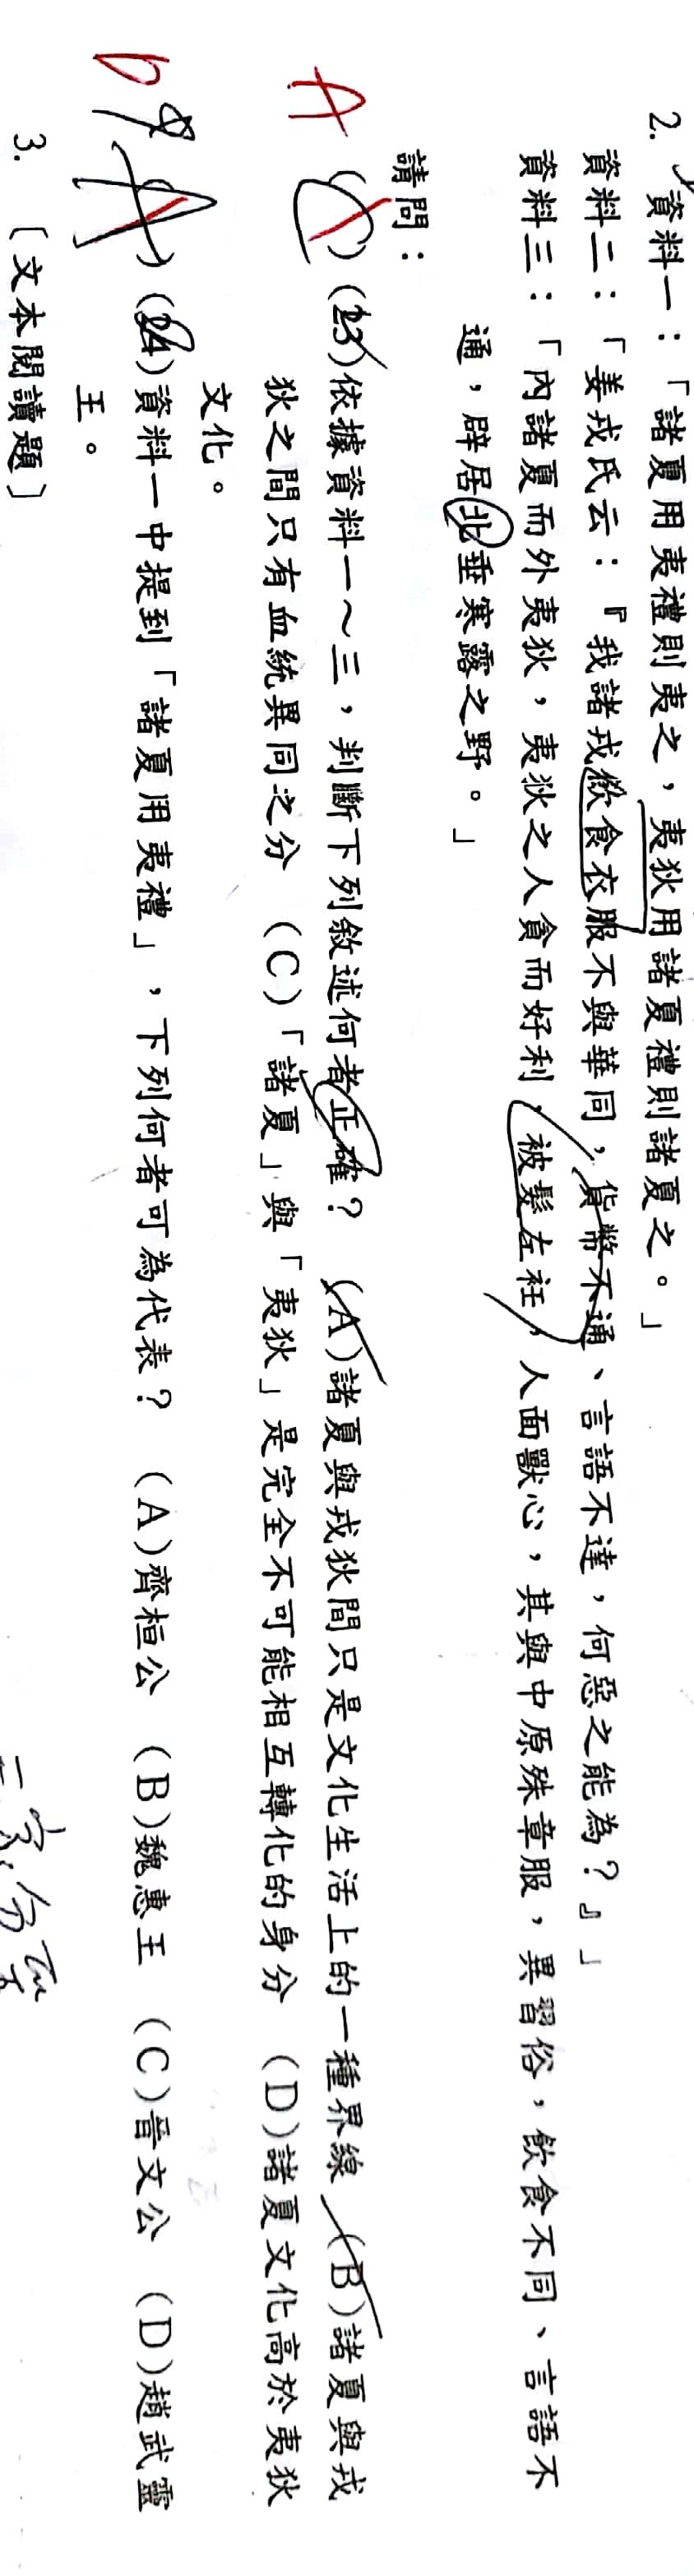 2. 資料一：「諸夏用夷禮則夷之，夷狄用諸夏禮則諸夏之。」
資料二：「姜戎氏云：『我諸戎飲食衣服不與華同，貨幣不通、言語不達，何惡之能為？』」
資料三：「內諸夏而外夷狄，夷狄之人貪而好利，被髮左衽，人面獸心，其與中原殊章服，異習俗，飲食不同、言語不
通，辟居北垂寒露之野。」
請問：
A ( ) (23)依據資料一～三，判斷下列敘述何者正確？ (A)諸夏與戎狄間只是文化生活上的一種界線 (B)諸夏與戎
狄之間只有血統異同之分 (C)「諸夏」與「夷狄」是完全不可能相互轉化的身分 (D)諸夏文化高於夷狄
文化。
D (A) (24)資料一中提到「諸夏用夷禮」，下列何者可為代表？ (A)齊桓公 (B)魏惠王 (C)晉文公 (D)趙武靈
王。
3. 〔文本閱讀題〕